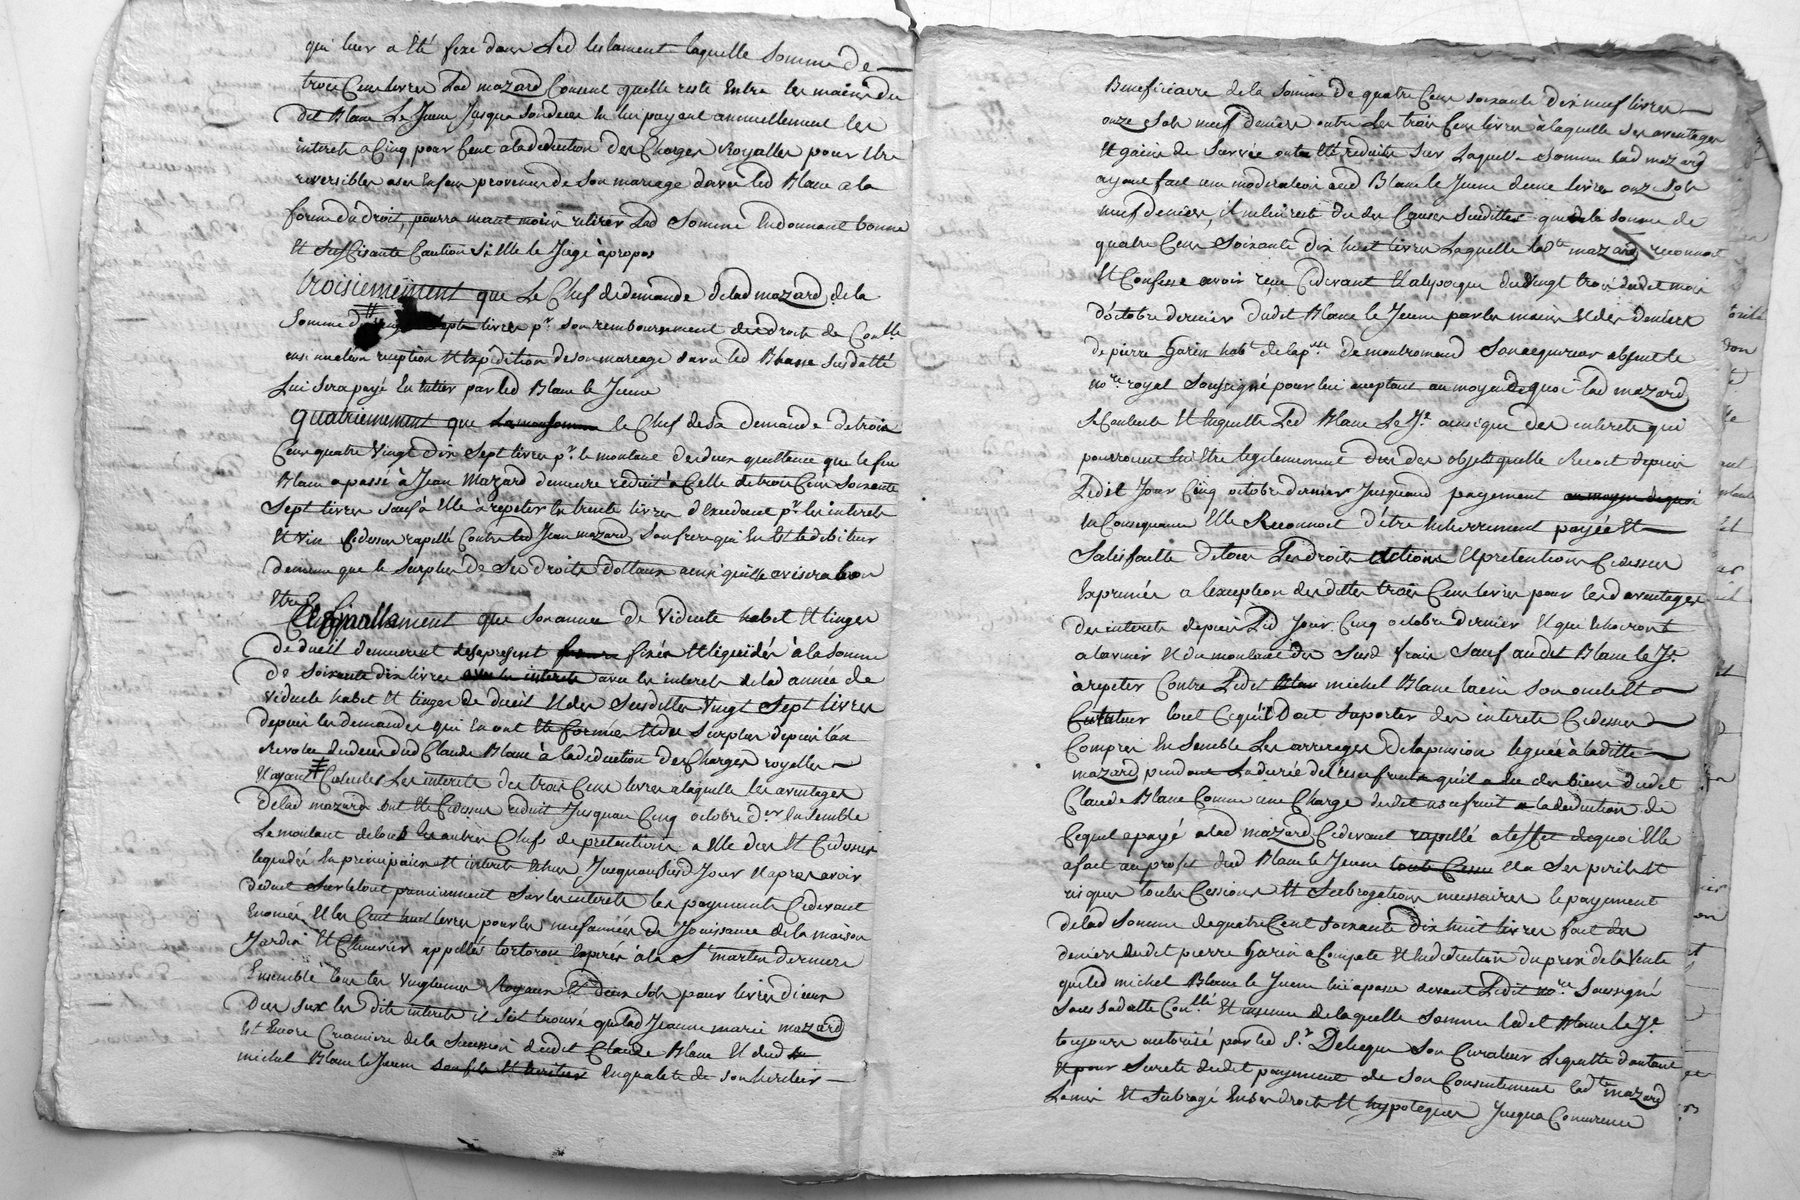 qui luy a été fixé dans Led testament laquelle somme de
trois Cens livres Lad mazard Consent quelle reste Entre les mains du
dit Blanc Le Jeune Jusqua son deces En lui payant annuellement les
interets a Cinq pour Cent a la deduction des Charges Royalles pour Etre
reversibles a ses Enfans provenus de son mariage avec led Blanc a la
forme du droit, pourra neant moins retirer Lad somme En donnant bonne
Et suffisante Caution si Elle le Juge à propos
troisiemement que Le Chef de demande de lad mazard de la
somme de sept livres pr. son remboursement des droits de Conlle
insinuation reception Et Expedition de son mariage avec led Blanc susdatté
Lui sera payé En Entier par led Blanc le Jeune
quatriemement que le Chef de sa demande de trois
Cens quatre vingt dix sept livres pr. le montant des deux quittances que le feu
Blanc a passé à Jean Mazard demeure réduit à Celle de trois Cens soixante
sept livres sauf à Elle à repeter les trente livres d'Excedant pr. les interets
Et vin Cidessus rapellé Contre led Jean mazard son frere qui En Est le debiteur
de meme que le surplus de ses droits dottaux ainsi quelle avisera bon
Etre
Et finallement que son année de viduité habit Et linges
de dueil demeurent des apresent fixés Et liquidés à la somme
de soixante dix livres avec les interets avec les interets de lad année de
viduité habit Et linges de dueil Et des susdittes vingt sept livres
depuis les demandes qui En ont Eté formées Et du surplus depuis l'an
revolu du deces dud Claude Blanc à la deduction des Charges royalles
Et ayant Calculé Les interets des trois Cens livres a laquelle les avantages
de lad mazard ont Eté Cidessus reduit Jusquau Cinq octobre der Ensemble
Le montant de tous les autres Chefs de pretentions a Elle dus Et Cidessus
liquidés En principaux Et interets Echus Jusquau susd Jour Et apres avoir
deduit sur le tout premierement sur les interets les payements Cidevant
Enoncés Et les Cent huit livres pour les neuf années de Jouissance de la maison
Jardin Et Chenevier appellés tortoron Expirés à la St martin derniere
Ensemble tous les vingtiemes Royaux Et deux sols pour livres d'iceux
Dus sur les dits interets il s'est trouvé que lad Jeanne marie mazard
Est Encore Créanciere de la succession dudit Claude Blanc Et dud
michel Blanc le Jeune En qualité de son heritier
Beneficiaire de la somme de quatre Cens soixante dix neuf livres
onze sols neuf deniers outre Les trois Cens livres à laquelle ses avantages
Et gains de survie ont Eté reduits sur Laquelle somme lad mazard
ayant fait une moderation aud Blanc le Jeune d'une livre onze sols
neuf deniers, il ne lui reste du des Causes susdittes que de la somme de
quatre Cens soixante dix huit livres Laquelle ladte mazard reconnoit
Et Confesse avoir reçue Cidevant Et a l'epoque du vingt trois dudit mois
d'octobre dernier dudit Blanc le Jeune par les mains Et des deniers
de pierre Garin habt de la psse de montromand son acquereur absent le
nore royal soussigné pour lui aceptant au moyen de quoi lad mazard
se Contente Et lequitte Led Blanc Le Je. ainsi que des interets qui
pourroient lui Etre legitimement dus des objets quelle Recoit depuis
Ledit Jour Cinq octobre dernier Jusquaud payement au moyen de quoi
En Consequence Elle Reconnoit d'être Entierement payée Et
satisfaitte de tous Les droits actions Et pretentions Cidessus
Exprimés a l'exception des dittes trois Cens livres pour lesd avantages
des interets depuis Led Jour Cinq octobre dernier Et qui Echoiront
a l'avenir Et du montant des susd frais sauf audit Blanc le Je.
à repeter Contre Ledit michel Blanc laine son oncle Et
Curateur tout Ce qu'il Doit suporter des interets Cidessus
Compris Ensemble Les arrerages de la pension leguée à laditte
mazard pendant la durée de l'usufruit qu'il a eu des biens dudit
Claude Blanc Comme une Charge dudit usufruit a la deduction de
Ce quil a payé a lad mazard Cidevant rapellé a leffet de quoi Elle
a fait au profit dud Blanc le Jeune toute Cession Et a ses perils Et
risques toutes Cessions Et subrogations necessaires le payement
de lad somme de quatre Cent soixante dix huit livres fait des
deniers dudit pierre Garin a Compte Et En deduction du prix de la vente
que led michel Blanc le Jeune lui a passé devant Ledit nore soussigné
sous sa datte Conllé Et au moyen de laquelle somme ledit Blanc le Je.
toujours autorisé par led Sr Delecque son Curateur le quitte d'autant
Et pour sureté dudit payement de son Consentement ladte mazard
La mis Et subrogé En ses droits Et hypoteques Jusqua Concurrence